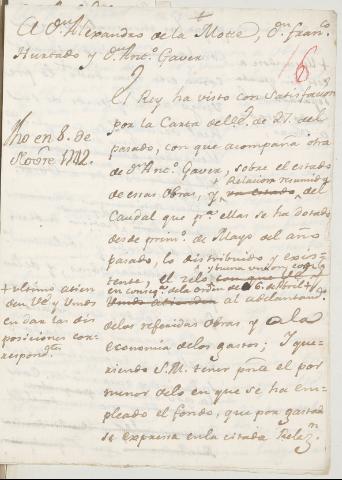 +
A Dⁿ Alexandro de la Motte, Dⁿ Franᶜᵒ
Hurtado y Dⁿ Antᵒ Gaver
6
El Rey ha visto con Satisfaccion
por la Carta de de 27. del
pasado, con que acompaña otra
de Dⁿ Antᵒ Gaver, sobre el estado
+ Relacion resumida
de essas Obras, y del
Caudal que pᵃ ellas se ha dotado
desde primᵒ de Mayo del año
pasado, lo distribuido y exis-
tente, el zelo
en conseqᵃ de la orden de 6. de Abril
al adelantamᵗᵒ
de las referidas Obras y a la
economia de los gastos; Y que-
riendo S.M. tener pñte el por
menor de lo en que se ha em-
pleado el fondo, que por gastado
se expressa en la citada Relazⁿ
fho en 8. de
1742.
+ ultimo atien
den Vᵉ y Vmds
en dar las dis
posiciones cor-
respondᵗᵉˢ